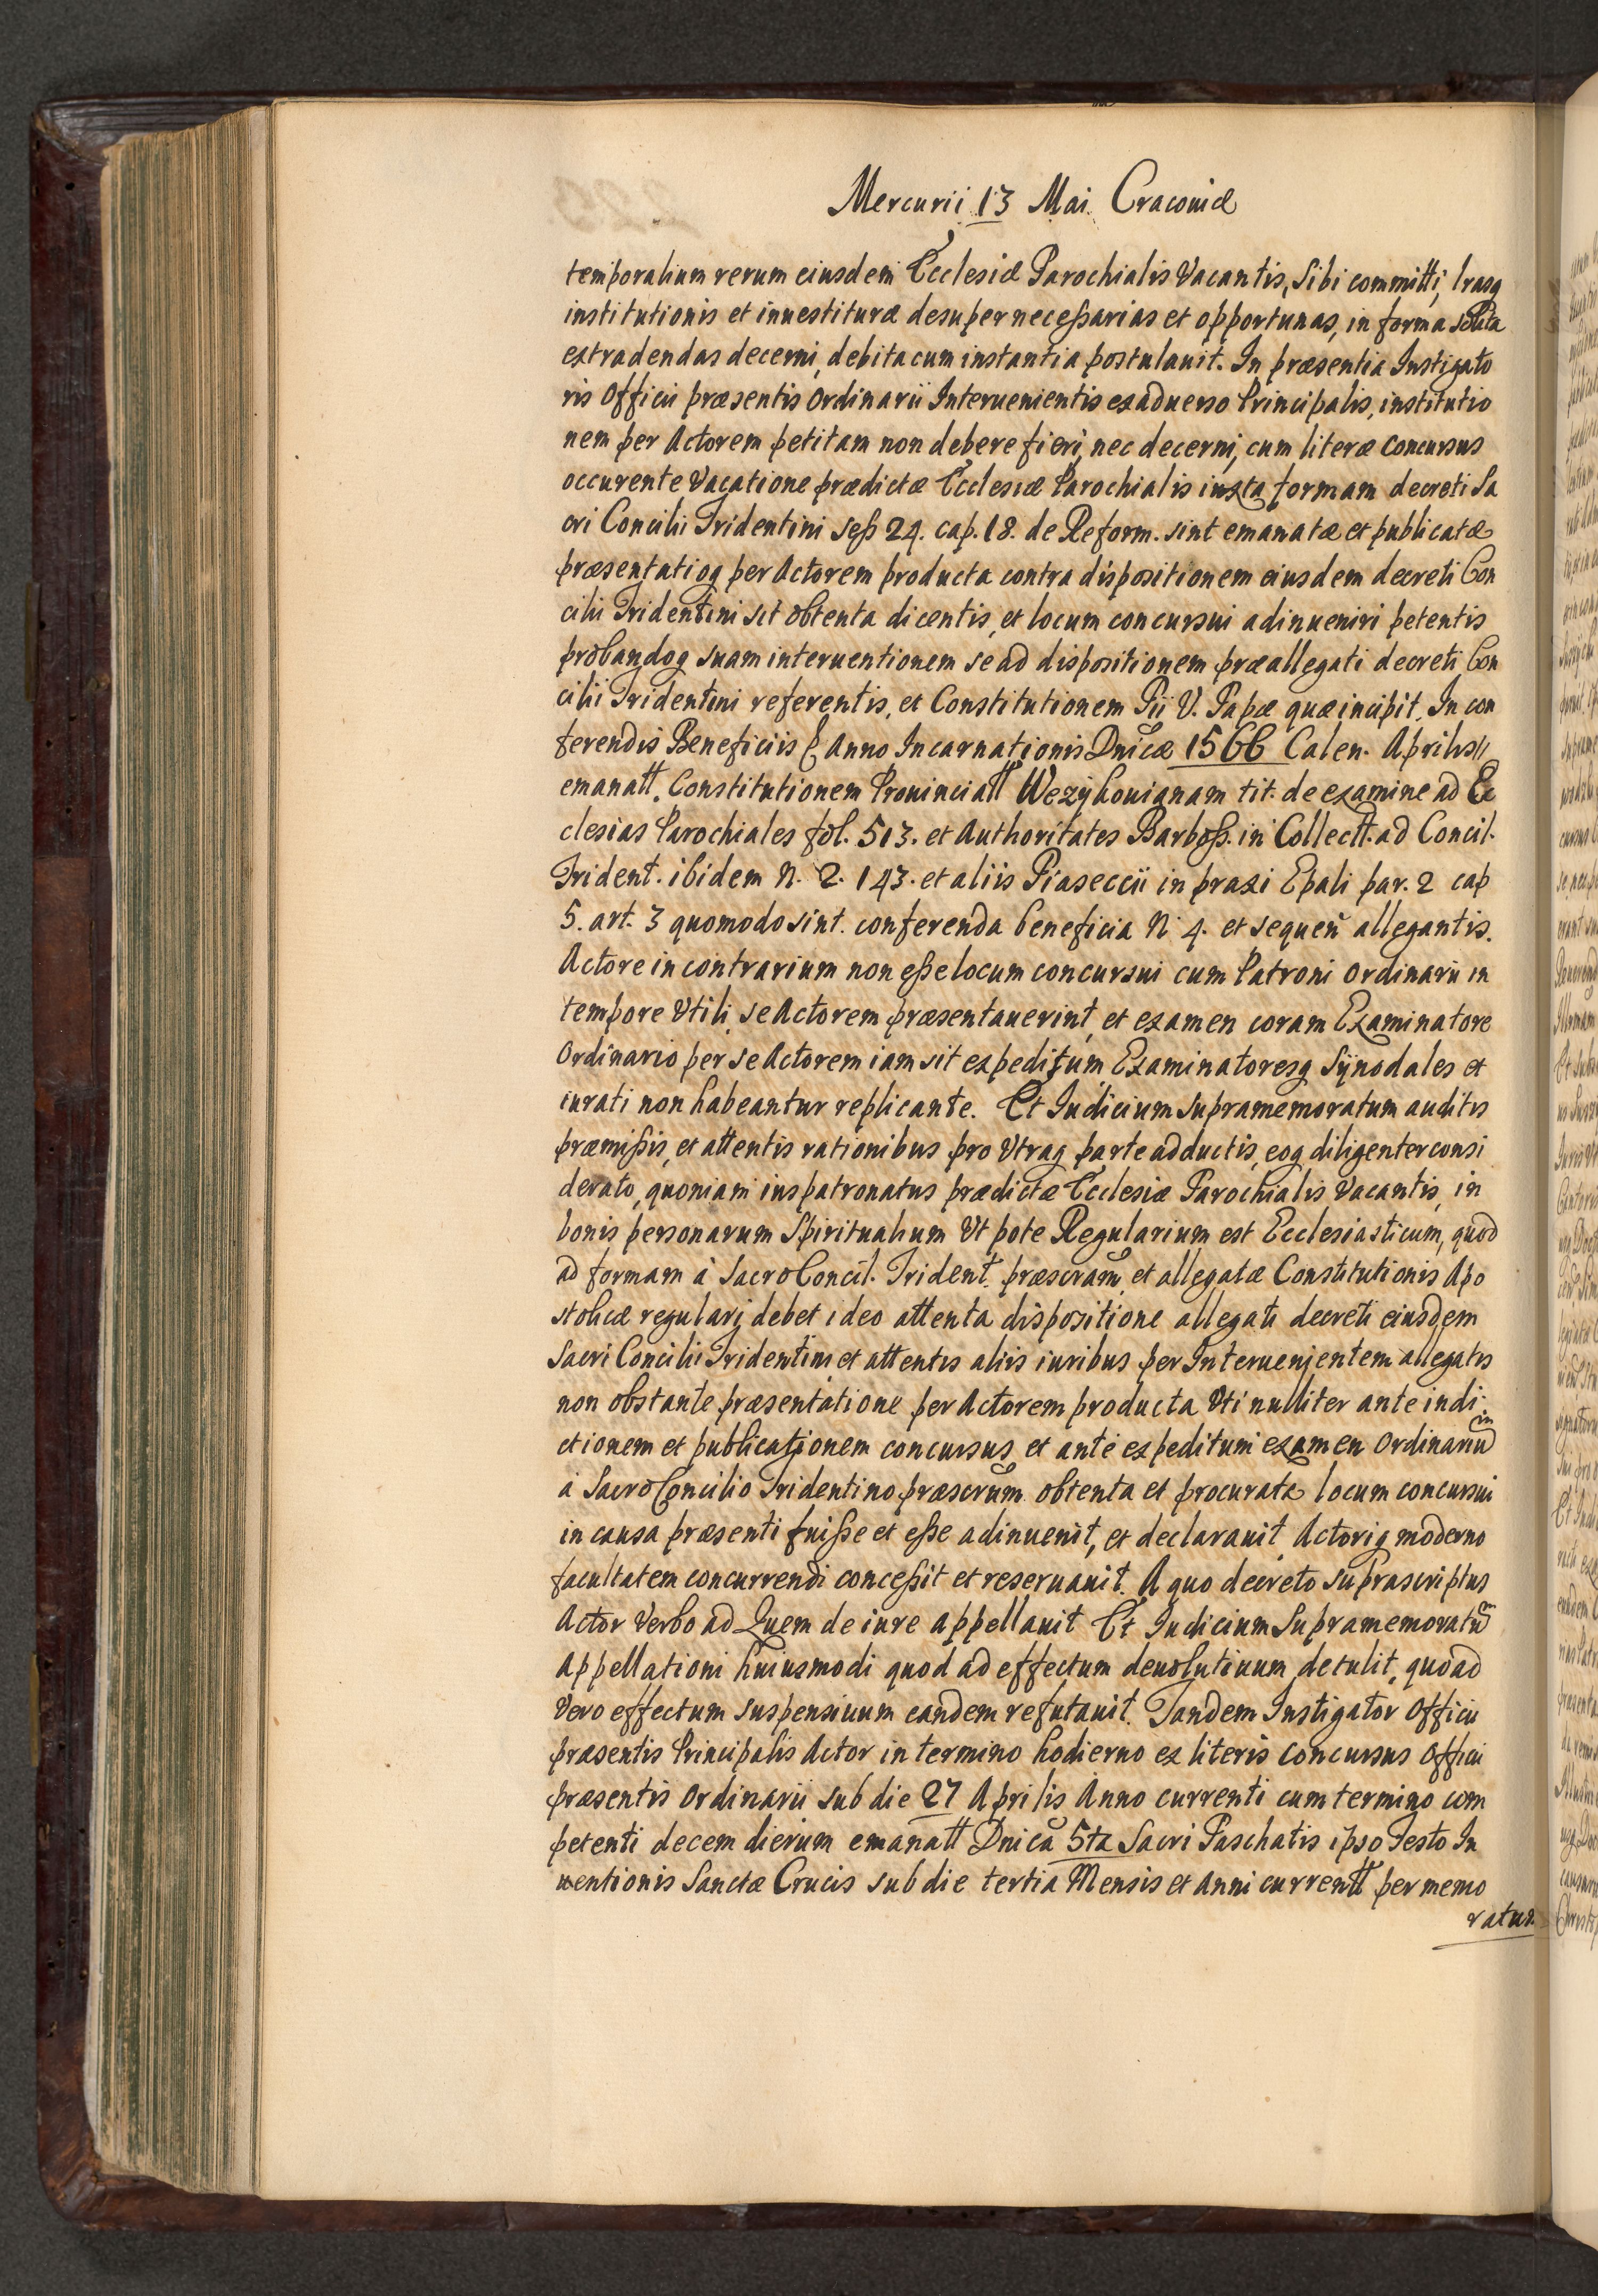 Mercurii 13 Mai. Cracouiæ
temporalium rerum eiusdem Ecclesiæ Parochialis Vacantis, Sibi committi, lrasq
institutionis et inuestituræ desuper necessarias et opportunas, in forma solita
extradendas decerni, debita cum instantia postulauit. In præsentia Instigato
ris Officii præsentis Ordinarii Interuenientis ex aduerso Principalis, institutio
nem per Actorem petitam non debere fieri, nec decerni, cum literæ concursus
occurente Vacatione prædictæ Ecclesiæ Parochialis iuxta formam decreti Sa
cri Concilii Tridentini sess 24. cap. 18. de Reform. sint emanatæ et publicatæ
præsentatioq per Actorem producta contra dispositionem eiusdem decreti Con
cilii Tridentini sit obtenta dicentis, et locum concursui adinueniri petentis
probandoq suam interuentionem se ad dispositionem præallegati decreti Con
cilii Tridentini referentis, et Constitutionem Pii V. Papæ quæ incipit, In con
ferendis Beneficiis & Anno Incarnationis Dnicæ 1566 Calen. Aprilis //
emanatt. Constitutionem Prouinciatt Wezykouianam tit. de examine ad Ec
clesias Parochiales fol. 513. et Authoritates Barboss. in Collectt. ad Concil.
Trident. ibidem N. 2. 143. et aliis Piaseccii in praxi Epali par. 2 cap
5. art. 3 quomodo sint. conferenda beneficia N 4. et sequen allegantis.
Actore in contrarium non esse locum concursui cum Patroni Ordinarii in
tempore Vtili se Actorem præsentauerint, et examen coram Examinatore
Ordinario per se Actorem iam sit expeditum Examinatoresq Synodales et
iurati non habeantur replicante. Et Iudicium supramemoratum auditis
præmissis, et attentis rationibus pro Vtraq parte adductis, eoq diligenter consi
derato, quoniam ius patronatus prædictæ Ecclesiæ Parochialis Vacantis, in
bonis personarum Spiritualium Vt pote Regularium est Ecclesiasticum, quod
ad formam à Sacro Concil. Trident. præscram, et allegatæ Constitutionis Apo
stolicæ regulari debet ideo attenta dispositione allegati decreti eiusdem
Sacri Concilii Tridentini et attentis aliis iuribus per Interuenientem allegatis
non obstante præsentatione per Actorem producta Vti nulliter ante indi
ctionem et publicationem concursus et ante expeditum examen Ordinariu in
à Sacro Concilio Tridentino præscrum obtenta et procurata locum concursui
in causa præsenti fuisse et esse adinuenit, et declarauit, Actoriq moderno
facultatem concurrendi concessit et reseruauit. A quo decreto suprascriptus
Actor Verbo ad Quem de iure appellauit Et Iudicium Supramemoratu
Appellationi huiusmodi quod ad effectum deuolutiuum detulit, quoad
Vero effectum suspensiuum eandem refutauit. Tandem Instigator Officii
præsentis Principalis Actor in termino hodierno ex literis concursus Officii
præsentis Ordinarii sub die 27 Aprilis Anno currenti cum termino com
petenti decem dierum emanatt Dnica 5ta Sacri Paschatis ipso Festo In
uentionis Sanctæ Crucis sub die tertia Mensis et Anni currentt per memo
ratum